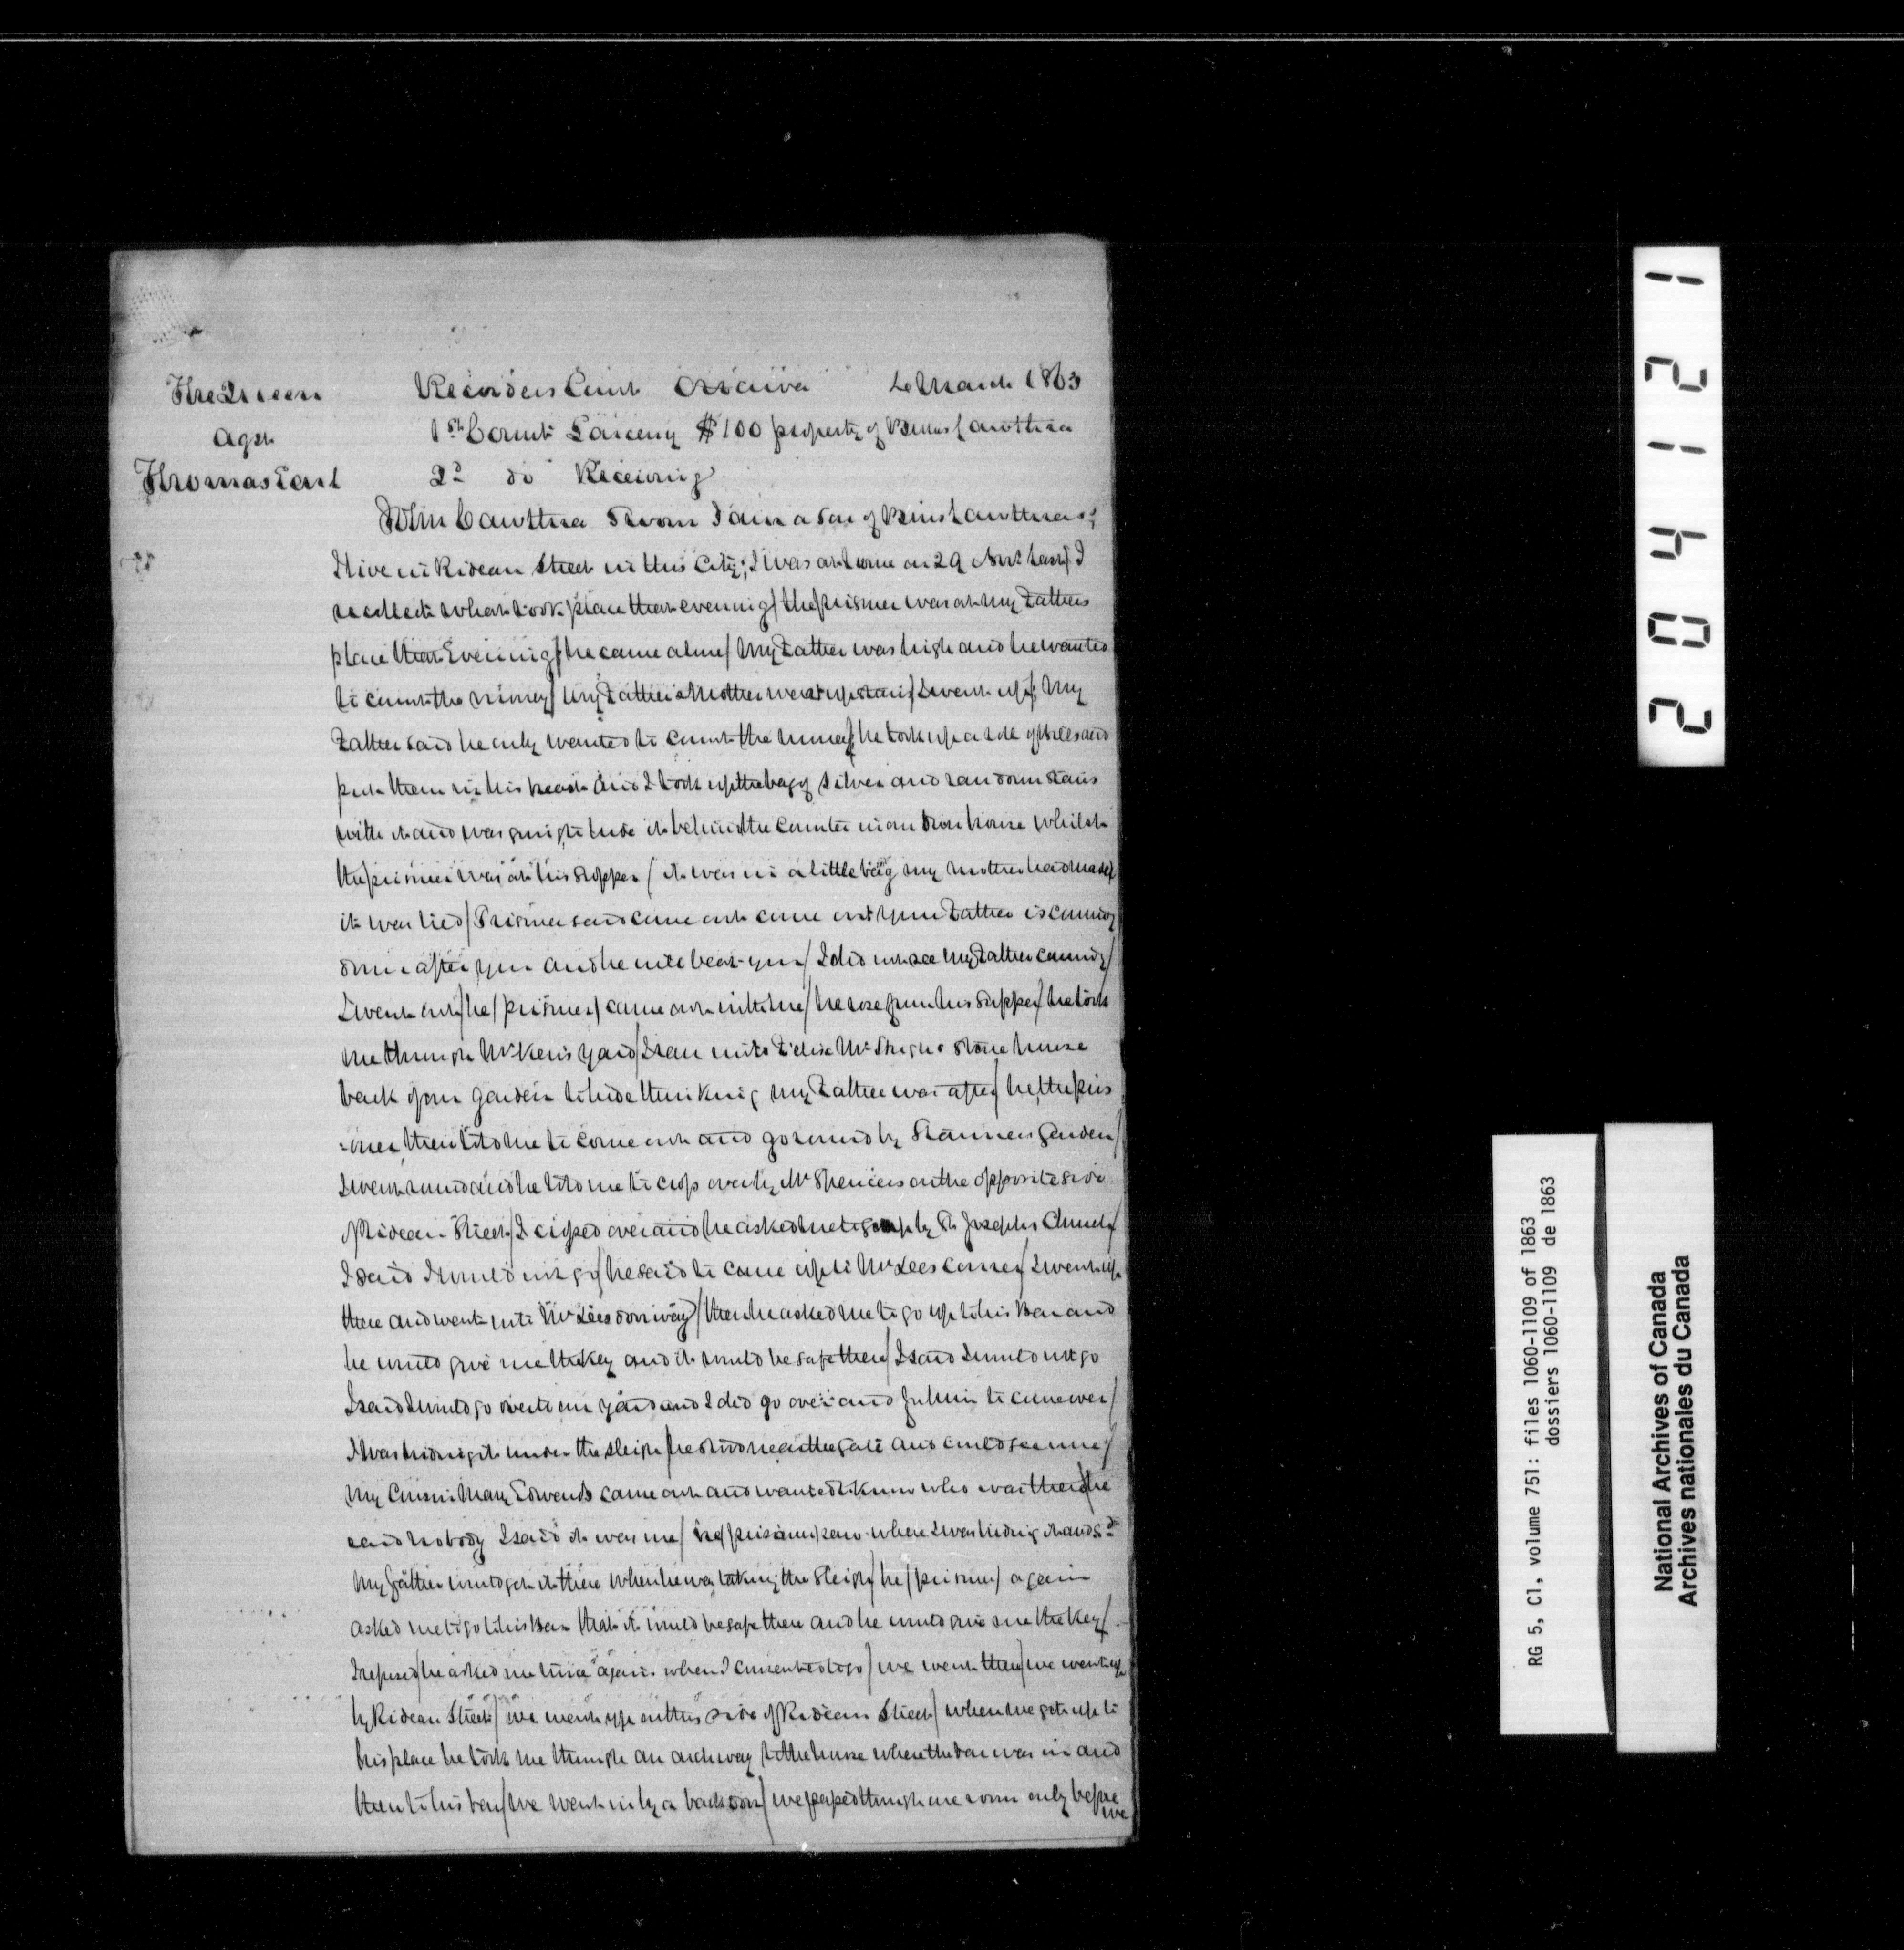 The Queen
agst
Thomas
Recorders Court Ottawa March 1863
1st Count Larceny $100 property of
2d do Receiving
John Cawthra Sworn I am a son of
I live in Rideau Street in this City; I was at home on 29 Novr last/ I
recollect what took place that evening/ the prisoner was at my Fathers
place that Evening/ he came alone/ My Father was high and he wanted
to count the money/ My Father & Mother went up stairs/ I went up/ My
Father said he only wanted to count the money/ he took up a roll of bills and
put them in his and I took up the bag of silver and ran down stairs
with it and was going to hide it behind the counter in our house whilst
the prisoner was at his supper/ it was in a little bag my mother had made/
it was tied/ Prisoner said come out come out your Father is coming
down after you and he will beat you/ I did not see my Father coming/
I went out/ he/ prisoner/ came out with me/ he rose from his supper/ he took
me through yard/ I ran into stone house
back of our garden to hide thinking my Father was after/ he, the pris
-oner, then told me to come out and go round by garden/
I went round and he told me to cross over by Mr on the opposite side
of Rideau Street/ I crossed over and he asked me to go up by St Josephs Church/
I said I would not go/ he said to come up to McLees corner/ I went up
there and went into McLees doorway/ then he asked me to go up to his Bar and
he would give me the key and it would be safe there/ I said I would not go
I said I would go over to our yard and I did go over and for him to come over/
I was hiding it under the sleigh/ he stood near the gate and could see me/
My Cousin Mary Edwards came out and wanted to know who was there/ he
said nobody I said it was me/ he/ prisoner/ saw where I was hiding it and sd
My father would get it there when he was taking the sleigh/ he/ prisoner/ again
asked me to go to his Bar that it would be safe there and he would give me the key/
I refused/ he asked me again when I consented to go/ we went then/ we went up
by Rideau Street/ we went up on this side of Rideau Street/ when we got up to
his place he took me through an archway to the house where the bar was in and
then to his bar/ we went in by a back door/ we passed through one room only before
we
204121
RG 5, C1, volume 751: files 1060-1109 of 1863
dossiers 1060-1109 de 1863
National Archives of Canada
Archives nationales du Canada